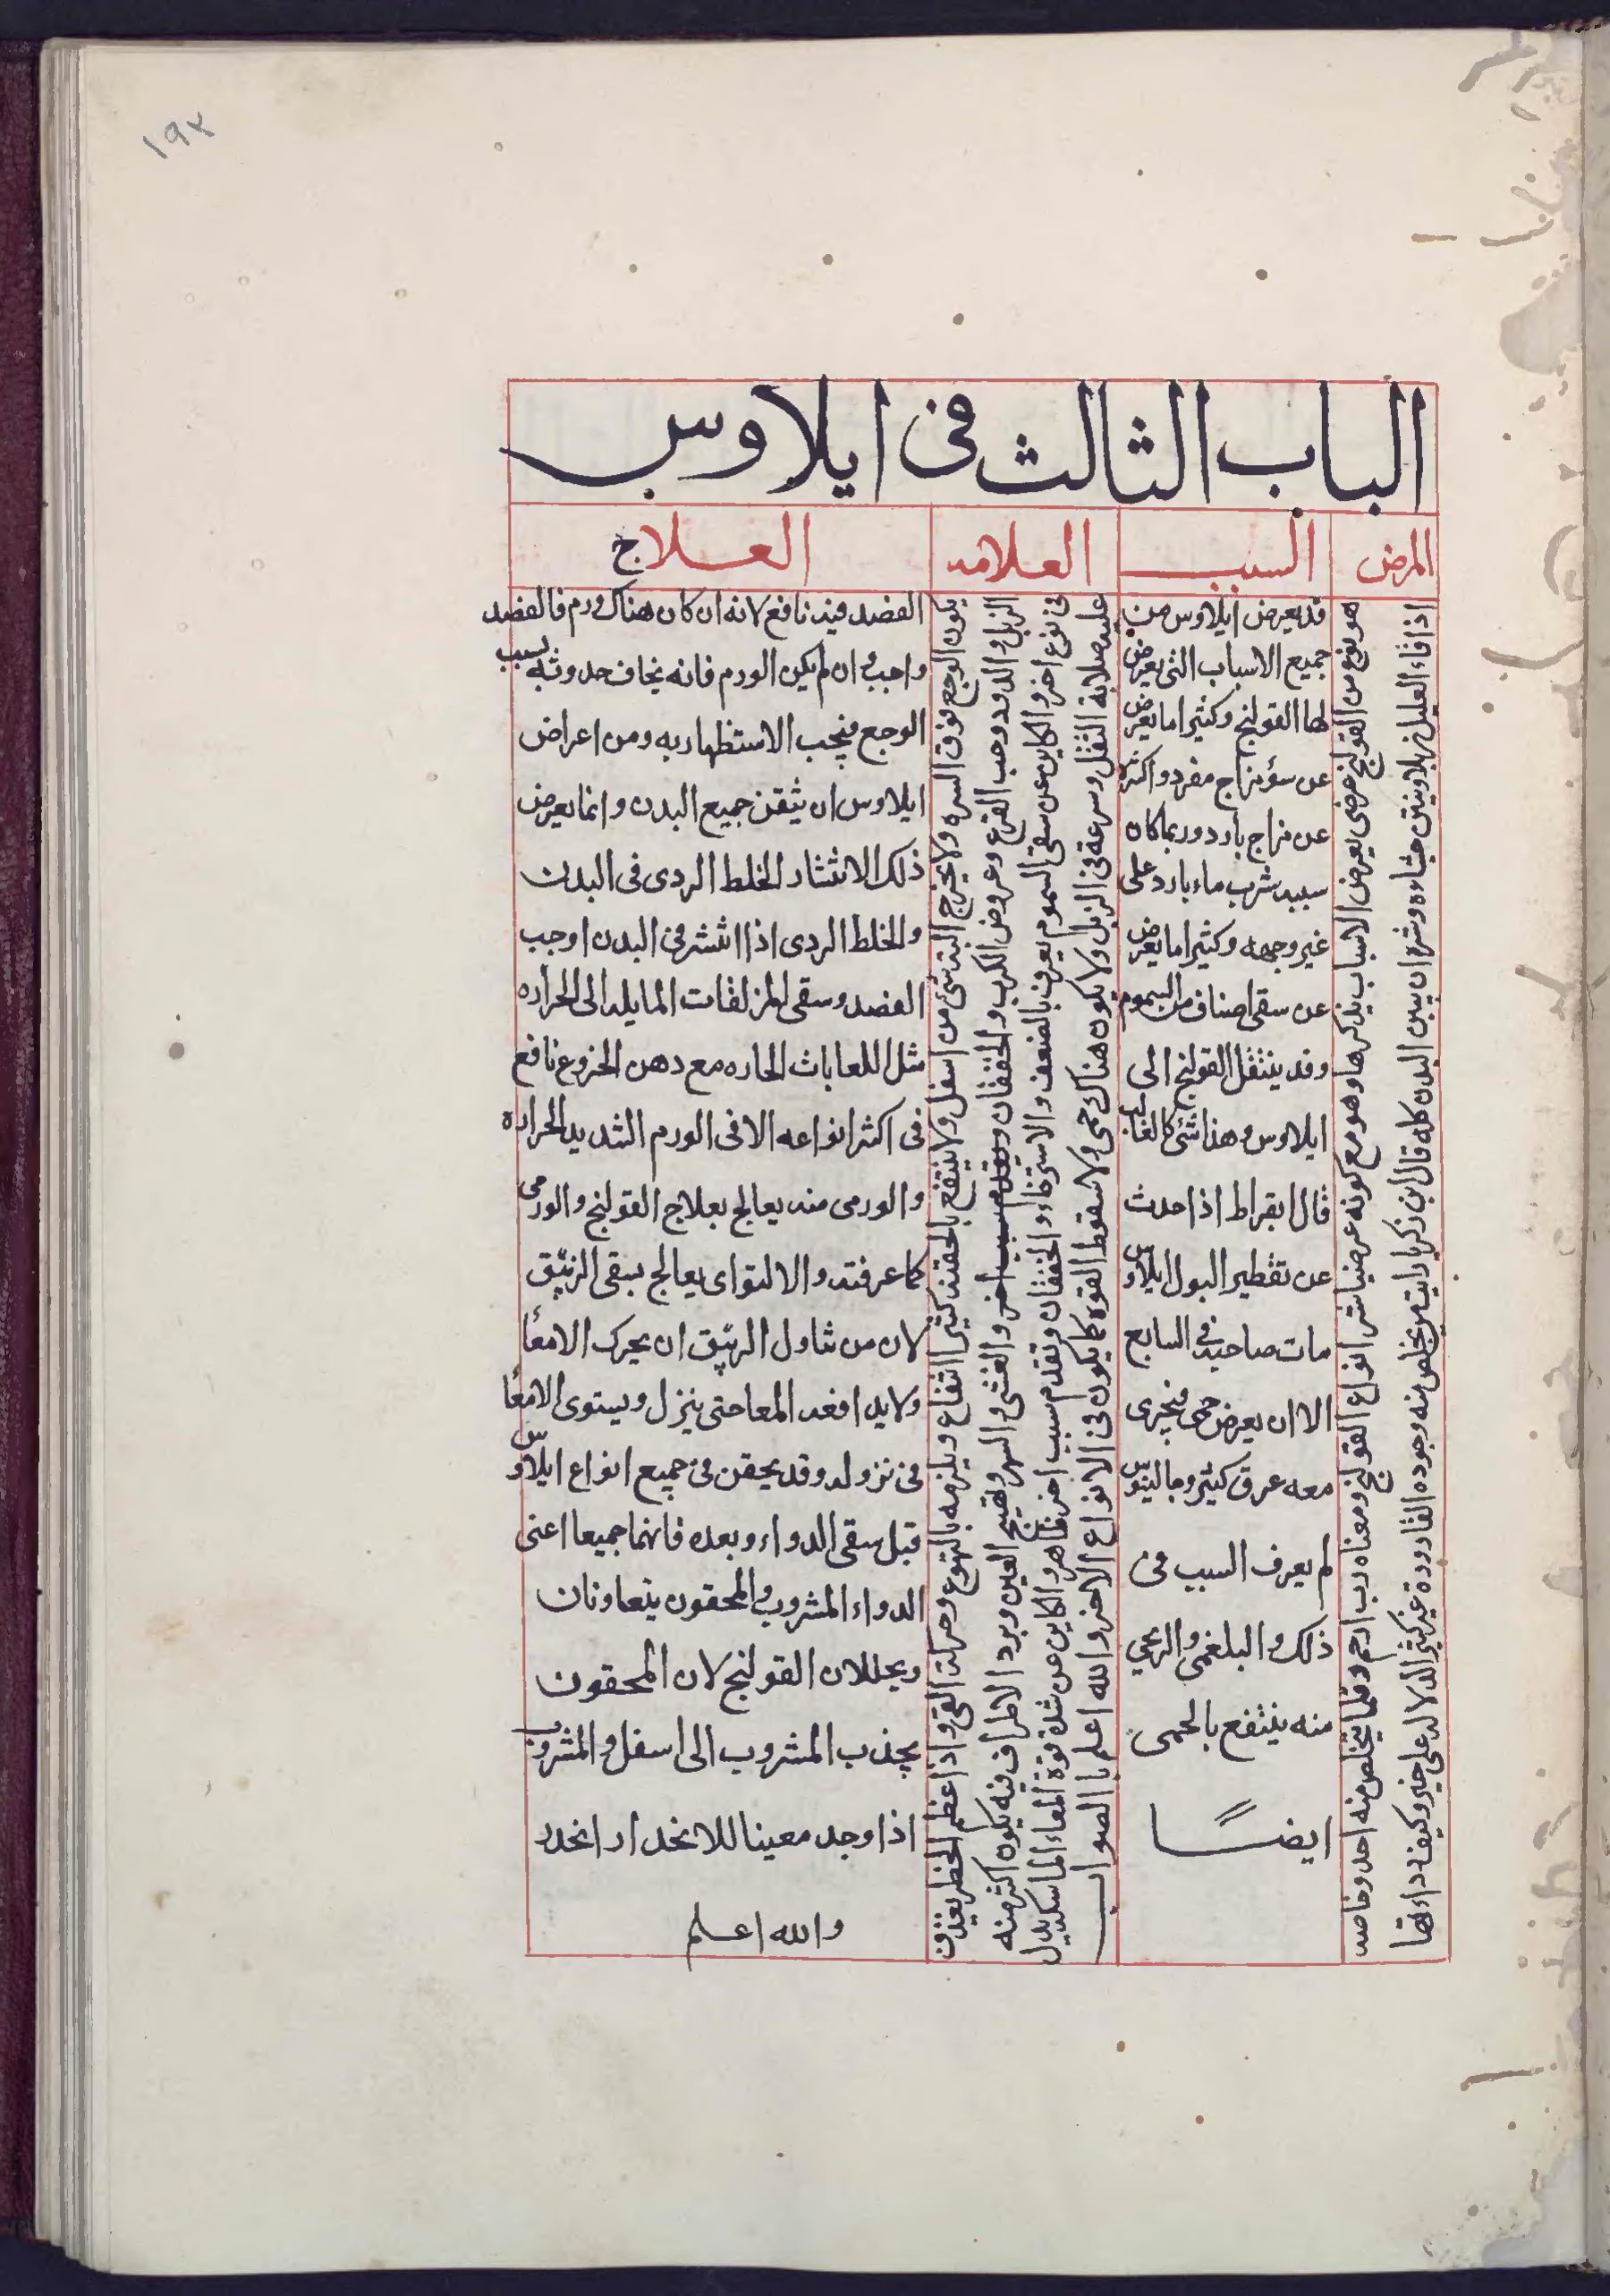 ١٩٢
الباب الثالث فى ايلاوس
المرض
السبب
العلامه
العلاج
هو نوع من القولنج عرضى يعرض الاسباب يذكرها وهو مع كونه عرضيا شر انواع القولنج ومعناه رب ارحم وقلما يتخلص منه احد وخاصه
اذا قاء العليل زبلا ونتن جشاءه وشره ان يبين البدن كله قال ابن زكريا رايت من يخلص منه وجوده القارورة غير كثير الدلاله على خير وكيف رداءتها
قد يعرض ايلاوس من
جميع الاسباب التى يعرض
لها القولنج وكثيرا ما يعرض
عن سؤ مزاج مفرد واكثره
عن مزاج بارد وربما كان
سببه شرب ماء بارد على
غير وجهه وكثيرا ما يعرض
عن سقى اصناف من السموم
وقد ينتقل القولنج الى
ايلاوس وهذا شئ كالغالب
قال ابقراط اذا حدث
عن تقطير البول ايلاوس
مات صاحبه فى السابع
الا ان يعرض حمى فيجرى
معه عرق كثير وجالينوس
لم يعرف السبب فى
ذلك والبلغمى والريحى
منه ينتفع بالحمى
ايضا
يكون الوجع فوق السره ولا يخرج البته شئ من اسفل ولا ينتفع بالحقنه كثير انتفاع ويلزمه بالتهوع وحركة القى واذا عظم الخطر يقذف
الزبل والدود وحب القرع وعروض الكرب والخفقان وتقدم سبب اخر والغشى والسهر وتهيج العين وبرد الاطراف فيه يكون اكثر منه
فى نوع اخر والكاين عن سقى السموم يعرف بالضعف والاسترخاء والخفقان وتقدم سبب اخر ظاهر والكاين عن شدة قوة المعاء الماسكه يدل
عليه صلابة الثفل وسرعة فى الزبل ولا يكون هناك حمى ولا سقوط القوه كما يكون فى الانواع الاخر والله اعلم بالصواب
الفصد فيه نافع لانه ان كان هناك ورم فالفصد
واجب وان لم يكن الورم فانه يخاف حدوثه بسبب
الوجع فيجب الاستظهار به ومن اعراض
ايلاوس ان ينتن جميع البدن وانما يعرض
ذلك الانتشار الخلط الردى فى البدن
والخلط الردى اذا انتشر فى البدن اوجب
الفصد وسقى المزلقات المايله الى الحراره
مثل اللعابات الحاره مع دهن الخروع نافع
فى اكثر انواعه الا فى الورم الشديد الحراره
والورمى منه يعالج بعلاج القولنج والورمى
كما عرفته والالتواى يعالج بسقى الزئبق
لان من شاول الزئبق ان يحرك الامعا
ولا يدافعه المعا حتى ينزل ويستوى الامعا
فى نزوله وقد يحقن فى جميع انواع ايلاوس
قبل سقى الدواء وبعده فانهما جميعا اعنى
الدواء المشروب والمحقون يتعاونان
ويحللان القولنج لان المحقون
يجذب المشروب الى اسفل والمشروب
اذا وجد معينا للانحدار انحدر
والله اعلم